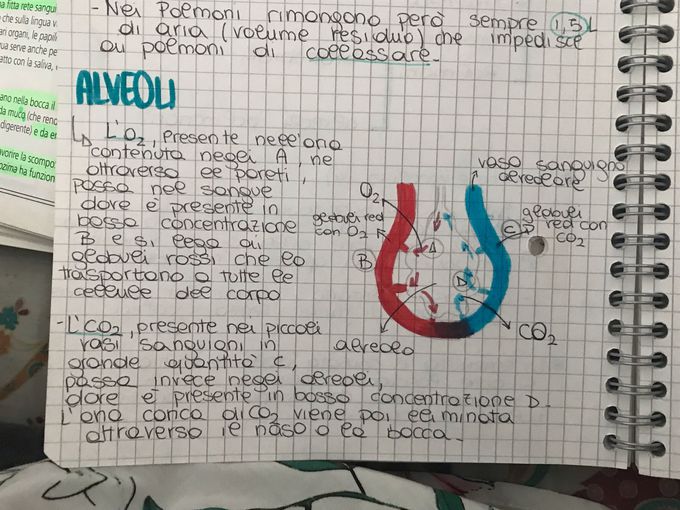 - Nei polmoni rimangono però sempre 1,5 L
di aria (volume residuo) che impedisce
ai polmoni di collassare.
ALVEOLI
L'O₂, presente nell'aria
contenuta negli A, ne
attraverso le pareti,
passa nel sangue
dove è presente in
bassa concentrazione
B e si lega ai
globuli rossi che lo
trasportano a tutte le
cellule del corpo
- L'CO₂, presente nei piccoli
vasi sanguigni in
grande quantità C,
passa invece negli alveoli,
dove è presente in bassa concentrazione D.
L'aria carica di CO₂ viene poi eliminata
attraverso il naso o la bocca.
vaso sanguigno
alveolare
O₂
globuli red
con O₂
globuli
red con
CO₂
A
B
C
D
alveolo
CO₂
a fitta rete sangui
che sulla lingua v
an organi, le papil
ua serve anche pe
atto con la saliva,
ano nella bocca il
da muco (che renc
digerente) e da en
avorire la scompo
ozima ha funzion